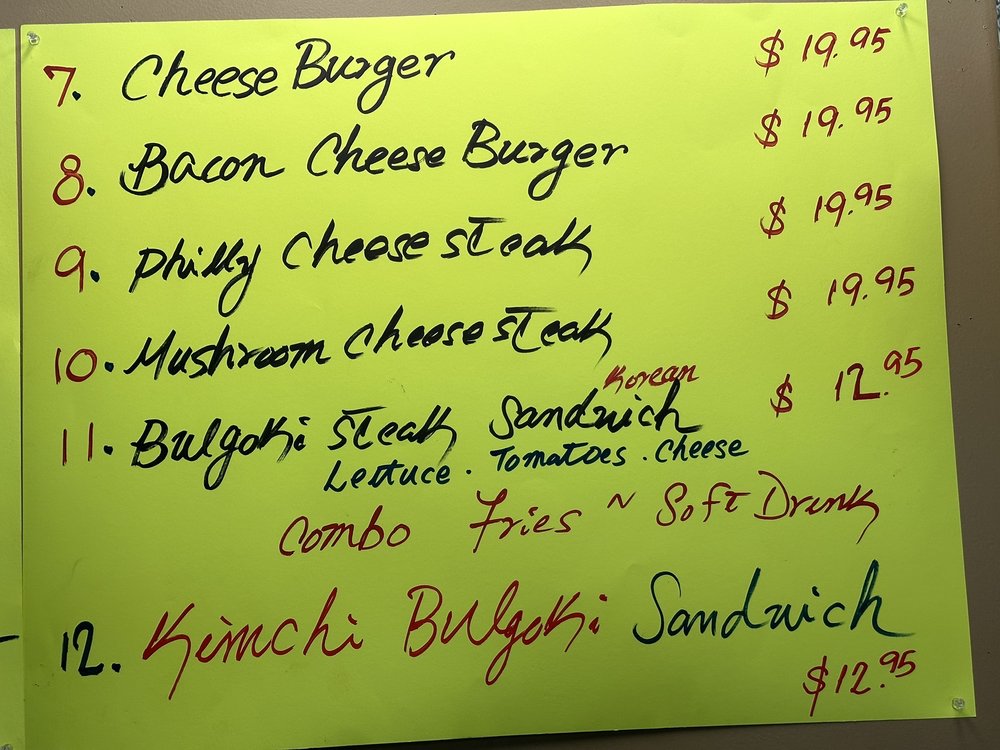 7. Cheese Burger $19.95
8. Bacon Cheese Burger $19.95
9. Philly Cheese steak $19.95
10. Mushroom Cheese steak $19.95
Korean
11. Bulgoki steak Sandwich $12.95
Lettuce . Tomatoes . Cheese
Combo Fries ~ Soft Drink
12. Kimchi Bulgoki Sandwich
$12.95